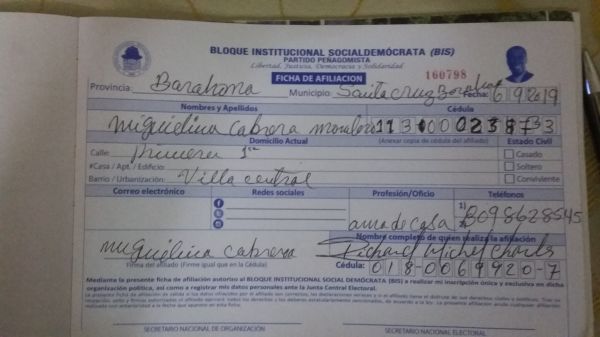 BLOQUE INSTITUCIONAL SOCIALDEMÓCRATA (BIS)
PARTIDO PEÑAGOMISTA
Libertad, Justicia, Democracia y Solidaridad
FICHA DE AFILIACION 160798
Provincia: Barahona Municipio: Santa Cruz Barahona Fecha: 6 9 2019
Nombres y Apellidos Cédula
Miguelina Cabrera Morales
Domicilio Actual (Anexar copia de cédula del afiliado) Estado Civil
Calle: Primera 1ra Casado
#Casa / Apt. / Edificio: Soltero
Barrio / Urbanización: Villa Central Conviviente
Correo electrónico Redes sociales Profesión/Oficio Teléfonos
ama de casa 1) 8098628545
2)
Nombre completo de quien realiza la afiliación
Miguelina Cabrera Richard Michel Charls
Firma del afiliado (Firme igual que en la Cédula) Cédula: 018-0069920-7
Mediante la presente ficha de afiliación autorizo al BLOQUE INSTITUCIONAL SOCIALDEMÓCRATA (BIS) a realizar mi inscripción única y exclusiva en dicha
organización política, así como a registrar mis datos personales ante la Junta Central Electoral.
SECRETARIO NACIONAL DE ORGANIZACIÓN SECRETARIO NACIONAL ELECTORAL